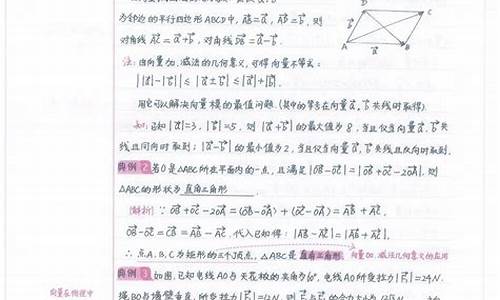 为邻边的平行四边形ABCD中, AB=a, AD=b, 则
对角线 AC=a+b, 对角线 DB=a-b.
D C
b
A a B
注: 由向量加、减法的几何意义, 可得向量不等式:
||a|-|b|| ≤ |a±b| ≤ |a|+|b|.
用它可以解决向量模的最值问题.(其中的等号在向量a、b共线时取得).
如: 已知|a|=3, |b|=5, 则|a+b|的最大值为8, 当且仅当向量a、b共
线且同向时取到; |a-b|的最小值为2, 当且仅当向量a、b共线且同向时取到.
典例2 若O是△ABC所在平面内的一点, 且满足|OB-OC|=|OB+OC-2OA|, 则
△ABC的形状为 直角三角形.
[解析] ∵ OB+OC-2OA=(OB-OA)+(OC-OA)=AB+AC,
OB-OC=CB=AB-AC. 代入已知得: |AB-AC|=|AB+AC|,
∴ 点A、B、C为矩形的三个顶点, △ABC是直角三角形. 向量加、减法几何意义的应用
典例3 如图, 已知电线AO与天花板的夹角为60°, 电线AO所受拉力|F₁|=24N.
向量在物理中
绳BO与墙壁垂直, 所受拉力|F₂|=12N. 则